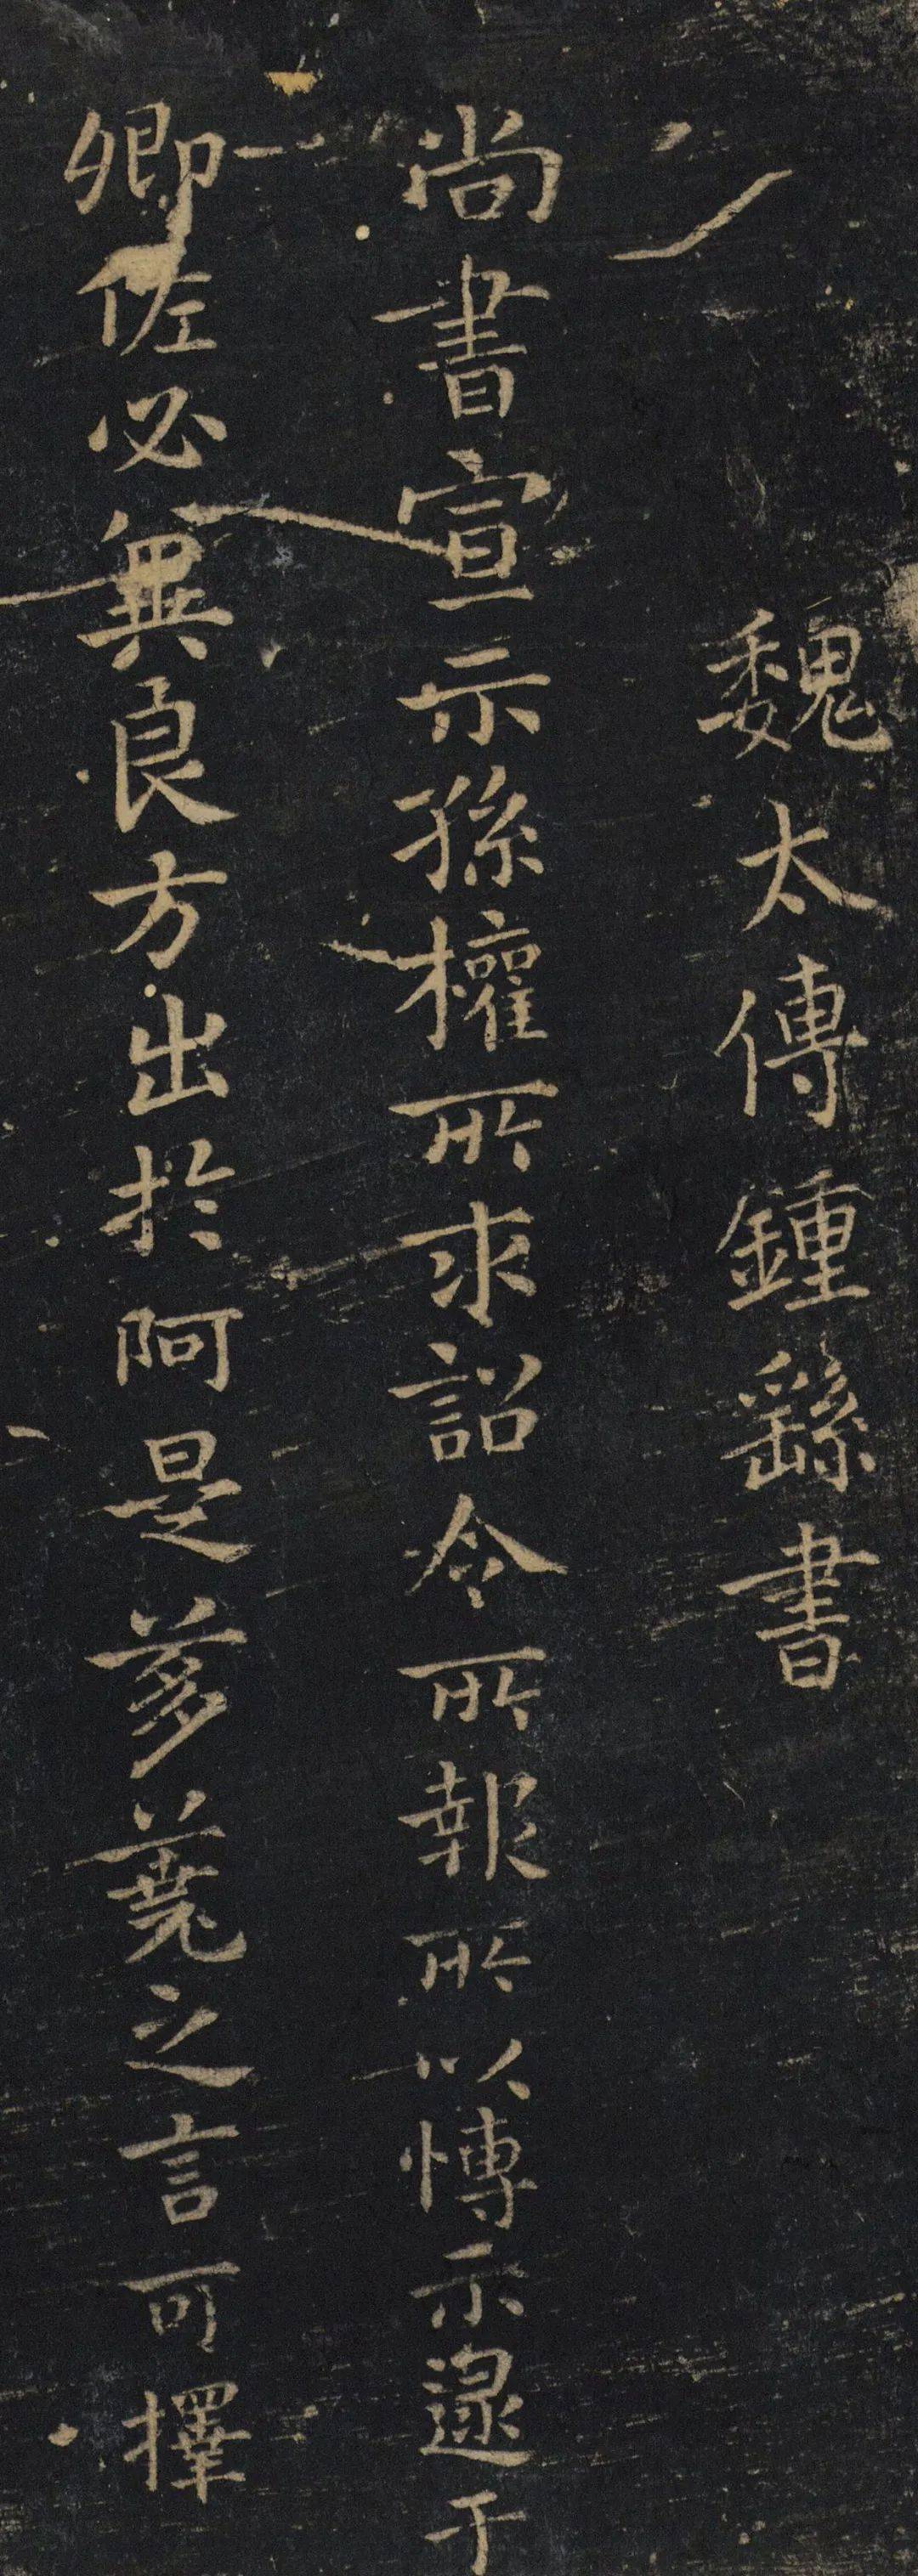 魏太傅鍾繇書
尚書宣示孫權所求詔令所報所以博示逮于
卿佐必無良方出於阿是芻蕘之言可擇